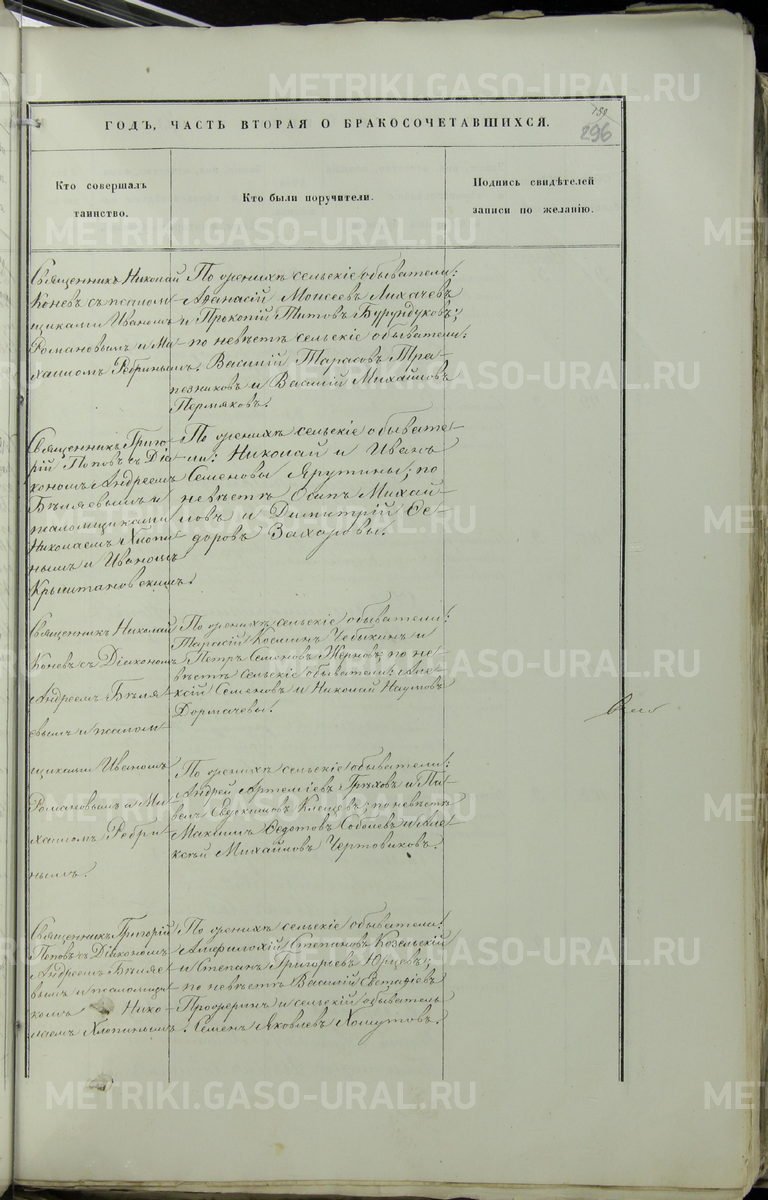 159
296
ГОДЪ, ЧАСТЬ ВТОРАЯ О БРАКОСОЧЕТАВШИХСЯ.
Кто совершалъ
таинство.
Кто были поручители.
Подпись свидѣтелей
записи по желанію.
Священникъ Николай
Коневъ съ псалом
щиками Иваномъ
Романовымъ и Ми
хаиломъ Ребринымъ.
По женихѣ сельскіе обыватели:
Аѳанасій Моисеевъ Лихачевъ
и Прокопій Титовъ Бурундуковъ;
по невѣстѣ сельскіе обыватели:
Василій Тарасовъ Тра-
пезниковъ и Василій Михайловъ
Пермяковъ.
Священникъ Григо
рій Поповъ съ Діа-
кономъ Андреемъ
Бѣляевымъ и
псаломщиками
Николаемъ Хлопи
нымъ и Иваномъ
Крыштановскимъ.
По женихѣ сельскіе обывате-
ли: Николай и Иванъ
Семеновы Ярутины; по
невѣстѣ Осипъ Михай-
ловъ и Димитрій Ѳе-
доровъ Захаровы.
Священникъ Николай
Коневъ съ Діакономъ
Андреемъ Бѣля-
евымъ и псалом-
щиками Иваномъ
Романовымъ и Ми-
хаиломъ Ребри-
нымъ.
По женихѣ сельскіе обыватели:
Тарасій Косминъ Чебыкинъ и
Петръ Семеновъ Жерновъ; по не-
вѣстѣ сельскіе обыватели: Але-
ксій Семеновъ и Николай Наумовъ
Дормачевы.
По женихѣ сельскіе обыватели:
Андрей Артеміевъ Грѣховъ и Па-
велъ Евдокимовъ Клещевъ; по невѣстѣ
Максимъ Ѳедотовъ Соболевъ и Але-
ксѣй Михайловъ Чертовиковъ.
Священникъ Григорій
Поповъ съ Діакономъ
Андреемъ Бѣляе-
вымъ и псаломщи-
комъ Нико-
лаемъ Хлопинымъ.
По женихѣ сельскіе обыватели:
Амфилохій Степановъ Козельскій
и Степанъ Григорьевъ Юрцевъ;
по невѣстѣ Василій Евстафіевъ
и сельскій обыватель
Семенъ Яковлевъ Хомутовъ.
METRIKI.GASO-URAL.RU